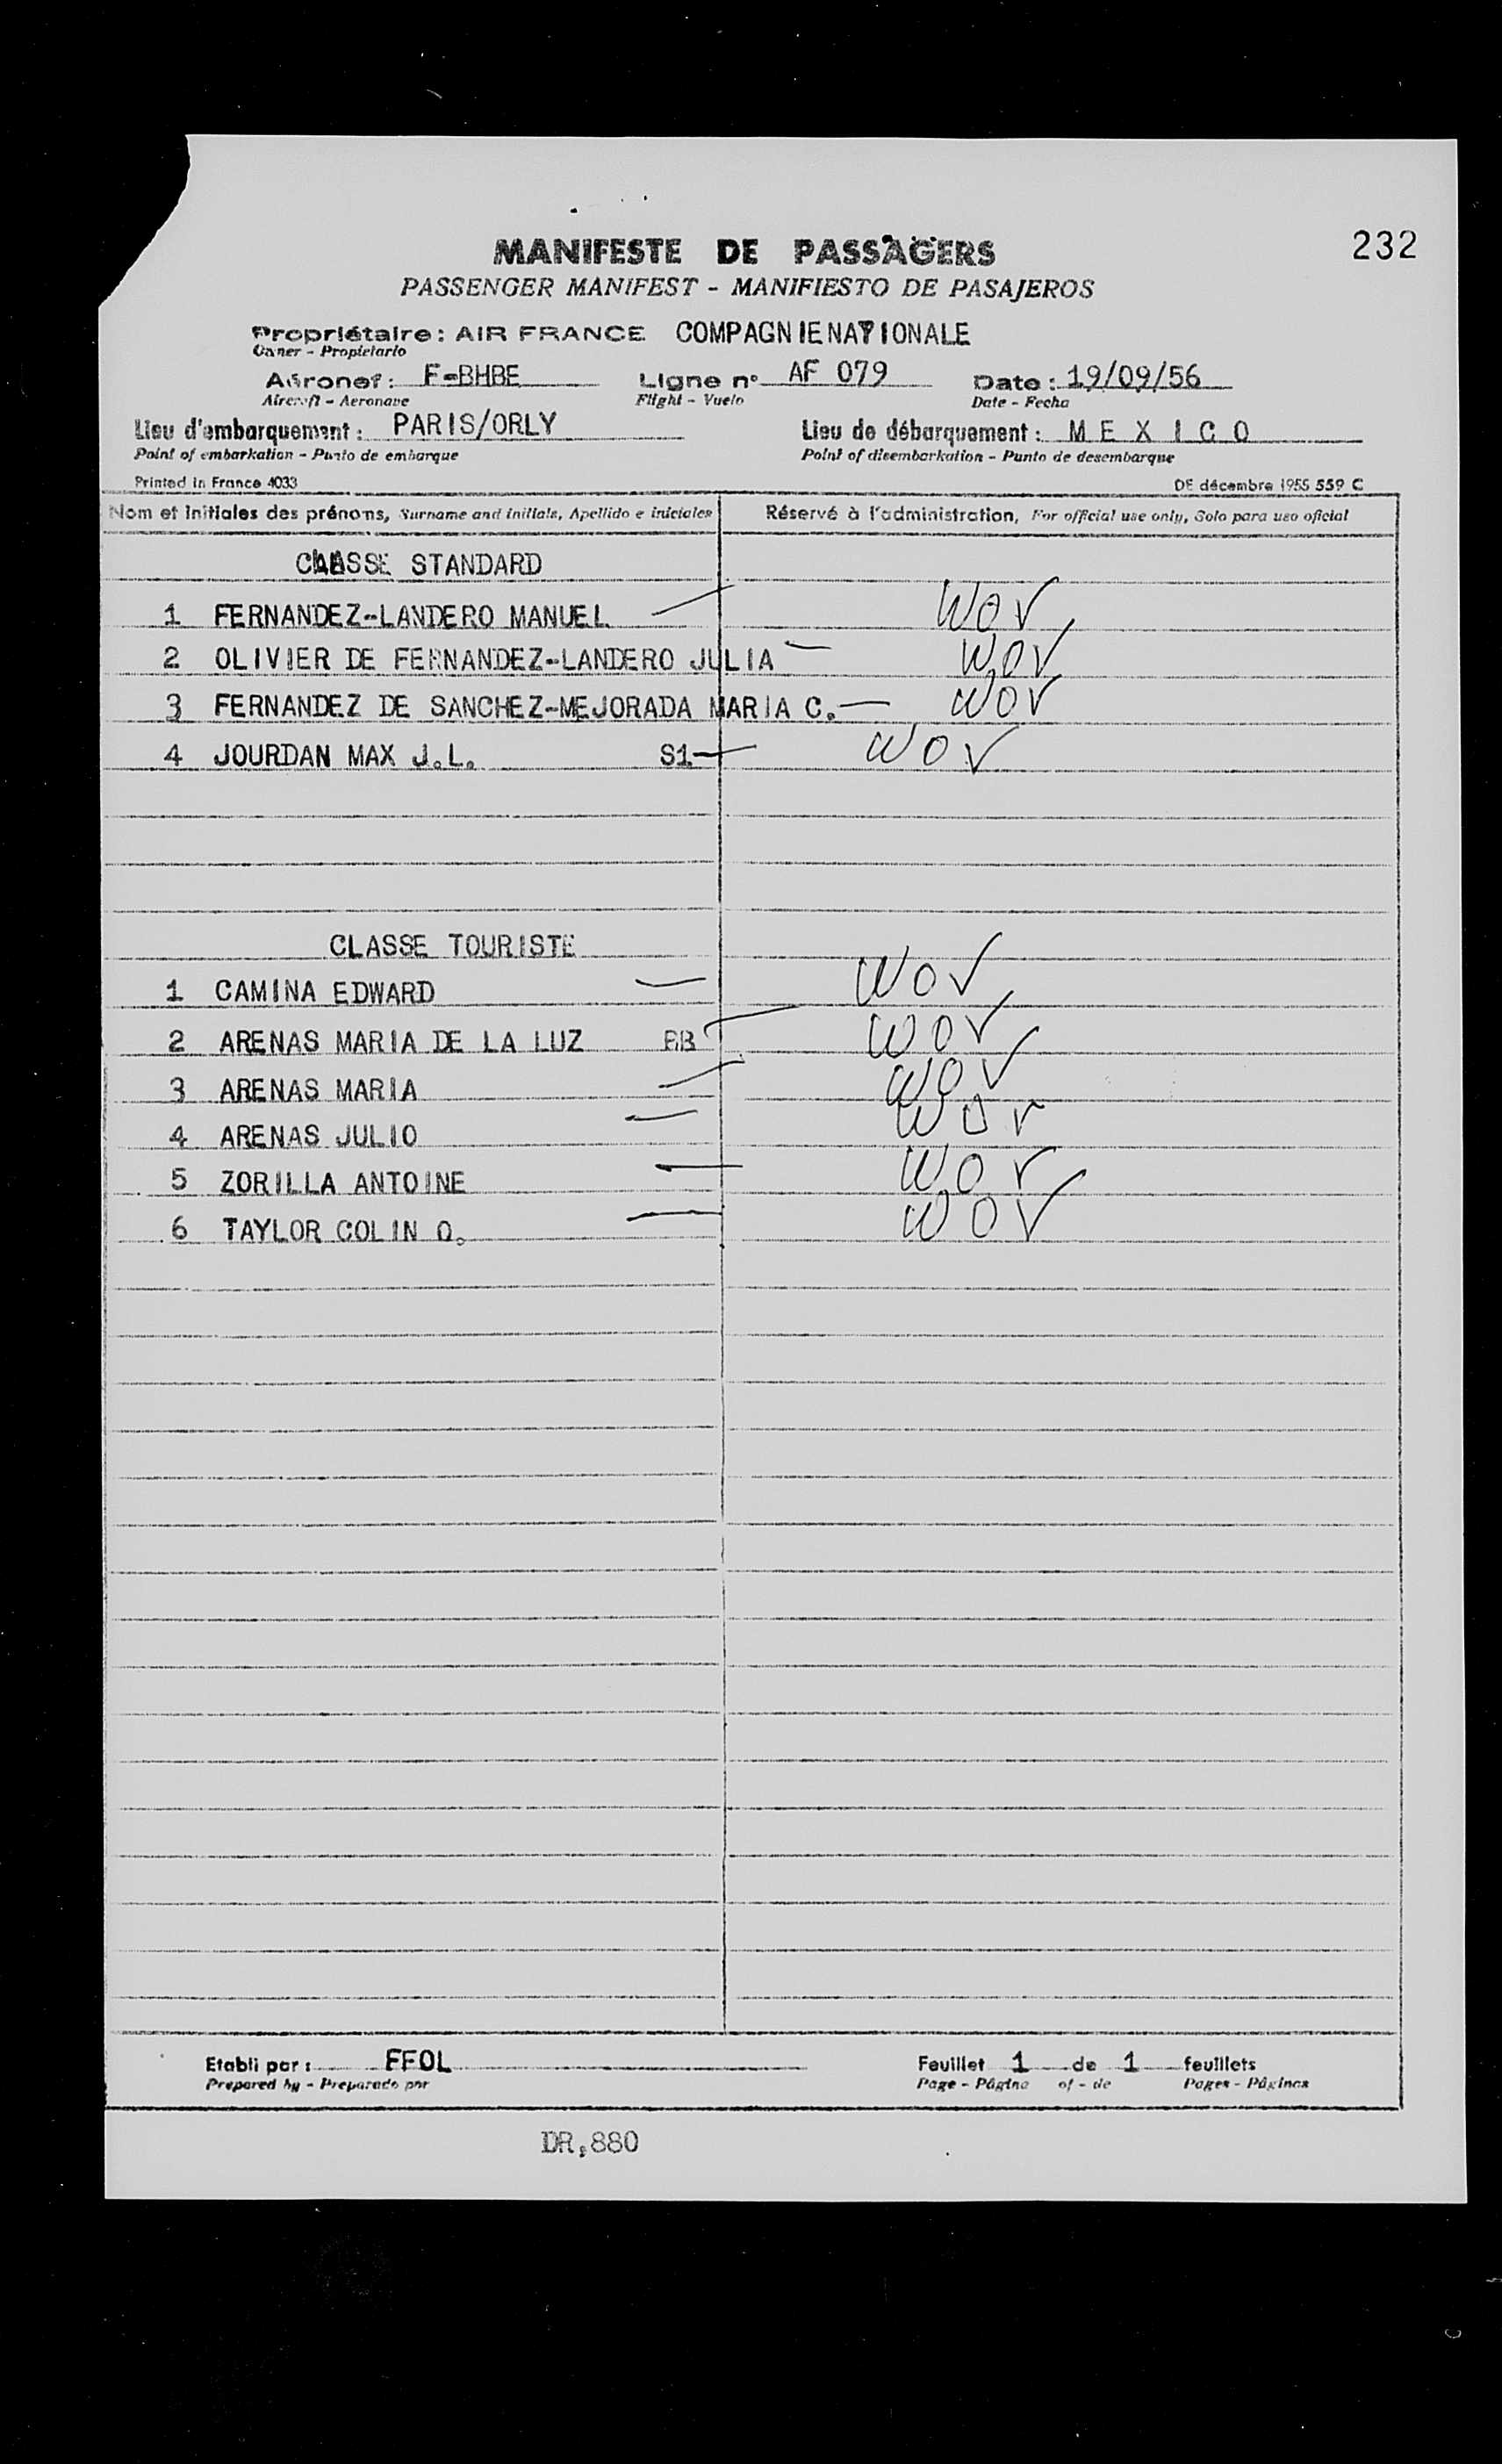 232
MANIFESTE DE PASSAGERS
PASSENGER MANIFEST - MANIFIESTO DE PASAJEROS
Propriétaire : AIR FRANCE COMPAGNIE NATIONALE
Owner - Propietario
Aéronef : F-BHBE Ligne n° AF 079 Date : 19/09/56
Aircraft - Aeronave Flight - Vuelo Date - Fecha
Lieu d'embarquement : PARIS/ORLY Lieu de débarquement : M E X I C O
Point of embarkation - Punto de embarque Point of disembarkation - Punto de desembarque
Printed in France 4033 DE décembre 1955 559 C
Nom et initiales des prénoms, Surname and initials, Apellido e iniciales Réservé à l'administration, For official use only, Solo para uso oficial
CLASSE STANDARD
1 FERNANDEZ-LANDERO MANUEL WOV
2 OLIVIER DE FERNANDEZ-LANDERO JULIA WOV
3 FERNANDEZ DE SANCHEZ-MEJORADA MARIA C. WOV
4 JOURDAN MAX J.L. S1 WOV
CLASSE TOURISTE
1 CAMINA EDWARD WOV
2 ARENAS MARIA DE LA LUZ BB WOV
3 ARENAS MARIA WOV
4 ARENAS JULIO WOV
5 ZORILLA ANTOINE WOV
6 TAYLOR COLIN O. WOV
Etabli par : FFOL Feuillet 1 de 1 feuillets
Prepared by - Preparado por Page - Página of - de Pages - Páginas
DR,880